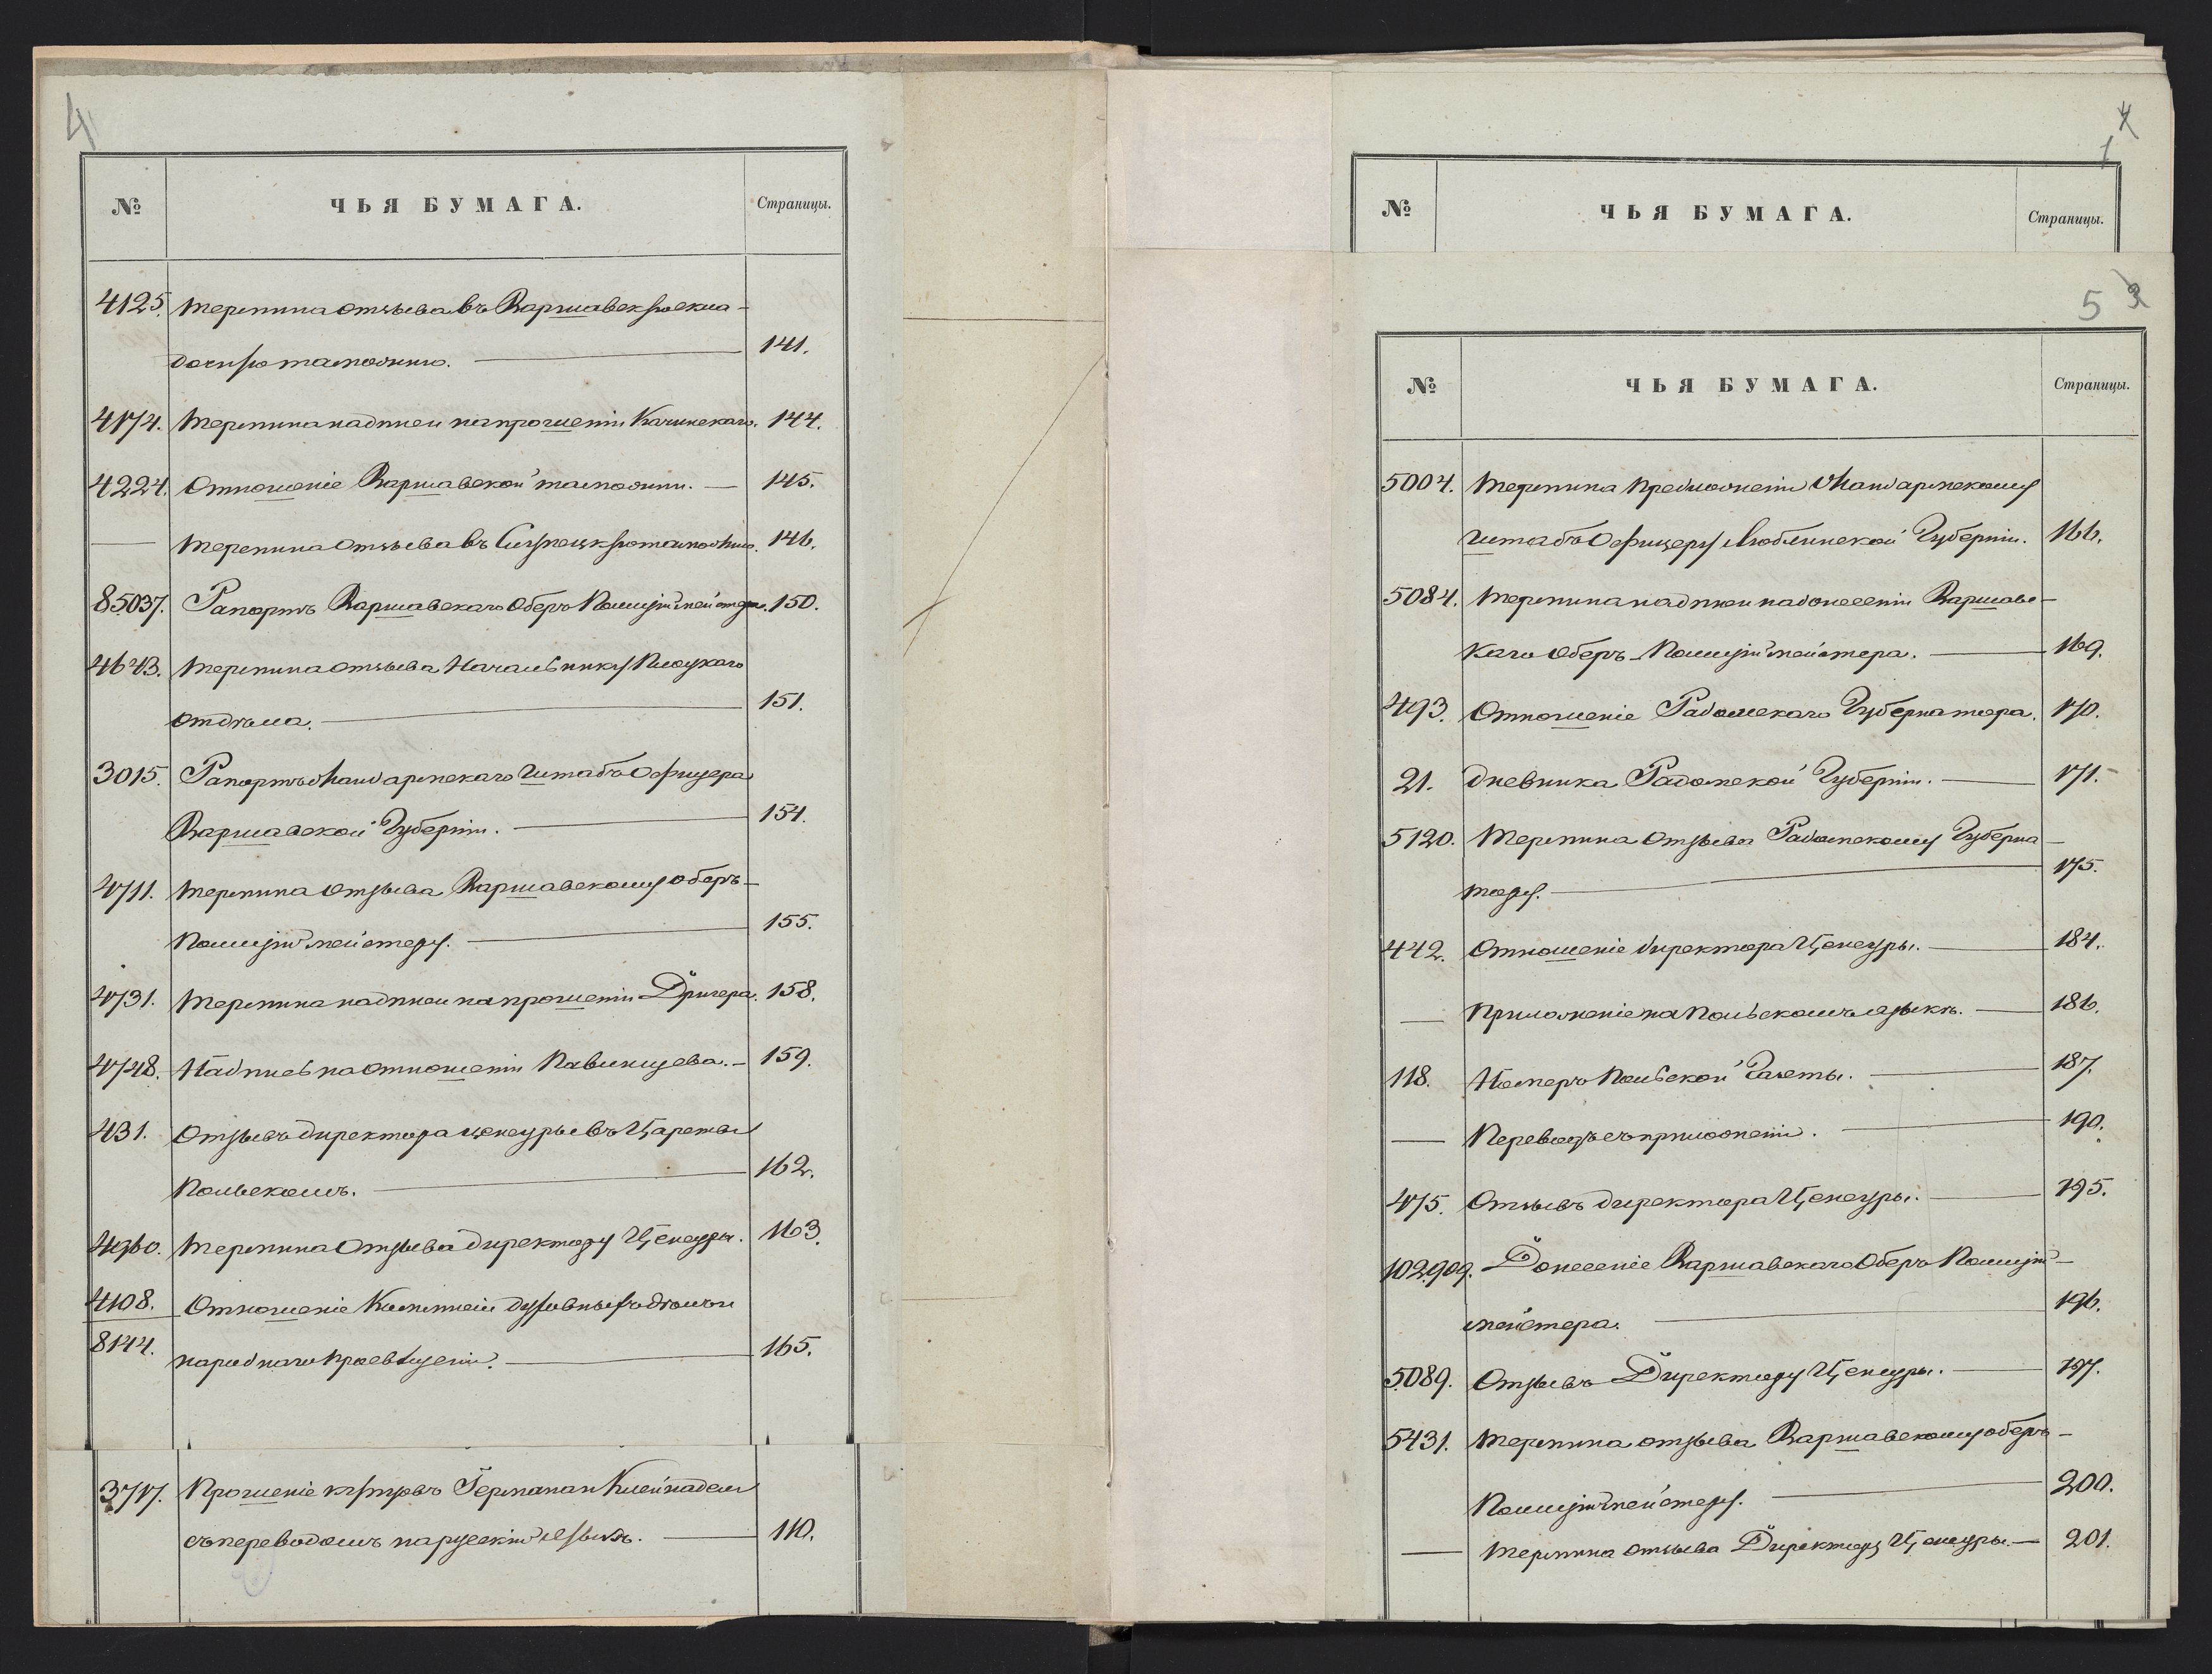 4
№ ЧЬЯ БУМАГА. Страницы.
4125. терминна отзыва въ Варшавскую скла-
дочную таможню. 141.
4174. терминна надписи на прошеніи Качинскаго. 144.
4224. Отношеніе Варшавской таможни. — 145.
— терминна отзыва въ таможню. 146.
85037. Рапортъ Варшавскаго Оберъ Полицiймейстера. 150.
4643. терминна отзыва Начальнику Плоцкаго
отдѣла. 151.
3015. Рапортъ Жандармскаго Штабъ Офицера
Варшавской Губерніи. 154.
4711. терминна отзыва Варшавскому оберъ-
Полицiймейстеру. 155.
4731. терминна надписи на прошеніи Дригера. 158.
4748. Надпись на отношеніи Павлищева. — 159.
431. Отзывъ директора цензуры въ Царствѣ
Польскомъ. 162.
4960. терминна Отзыва директору Цензуры. 163.
4108. Отношеніе Коммиссіи духовныхъ дѣлъ и
8144. народнаго просвѣщенія. 165.
3717. Прошеніе Германа Клейнадель
съ переводомъ на русскій языкъ. 110.
4
1
№ ЧЬЯ БУМАГА. Страницы.
5
№ ЧЬЯ БУМАГА. Страницы.
5004. терминна предложенія Жандармскому
Штабъ Офицеру Люблинской Губерніи. 166.
5084. терминна надписи на донесеніи Варшавс-
каго Оберъ-Полицiймейстера. 169.
493. Отношеніе Радомскаго Губернатора. 170.
21. дневника Радомской Губерніи. 171.
5120. терминна отзыва Радомскому Губерна-
тору. 175.
442. Отношеніе директора Цензуры. 184.
— Приложеніе на Польскомъ языкѣ. 186.
118. Номеръ Польской Газеты. 187.
— Переводъ съ приложенія. 190.
475. Отзывъ директора Цензуры. 195.
102,909. Донесеніе Варшавскаго Оберъ Полицiй-
мейстера. 196.
5089. Отзывъ Директору Цензуры. 197.
5431. терминна отзыва Варшавскому оберъ-
Полицiймейстеру. 200.
— терминна отзыва Директору Цензуры. — 201.